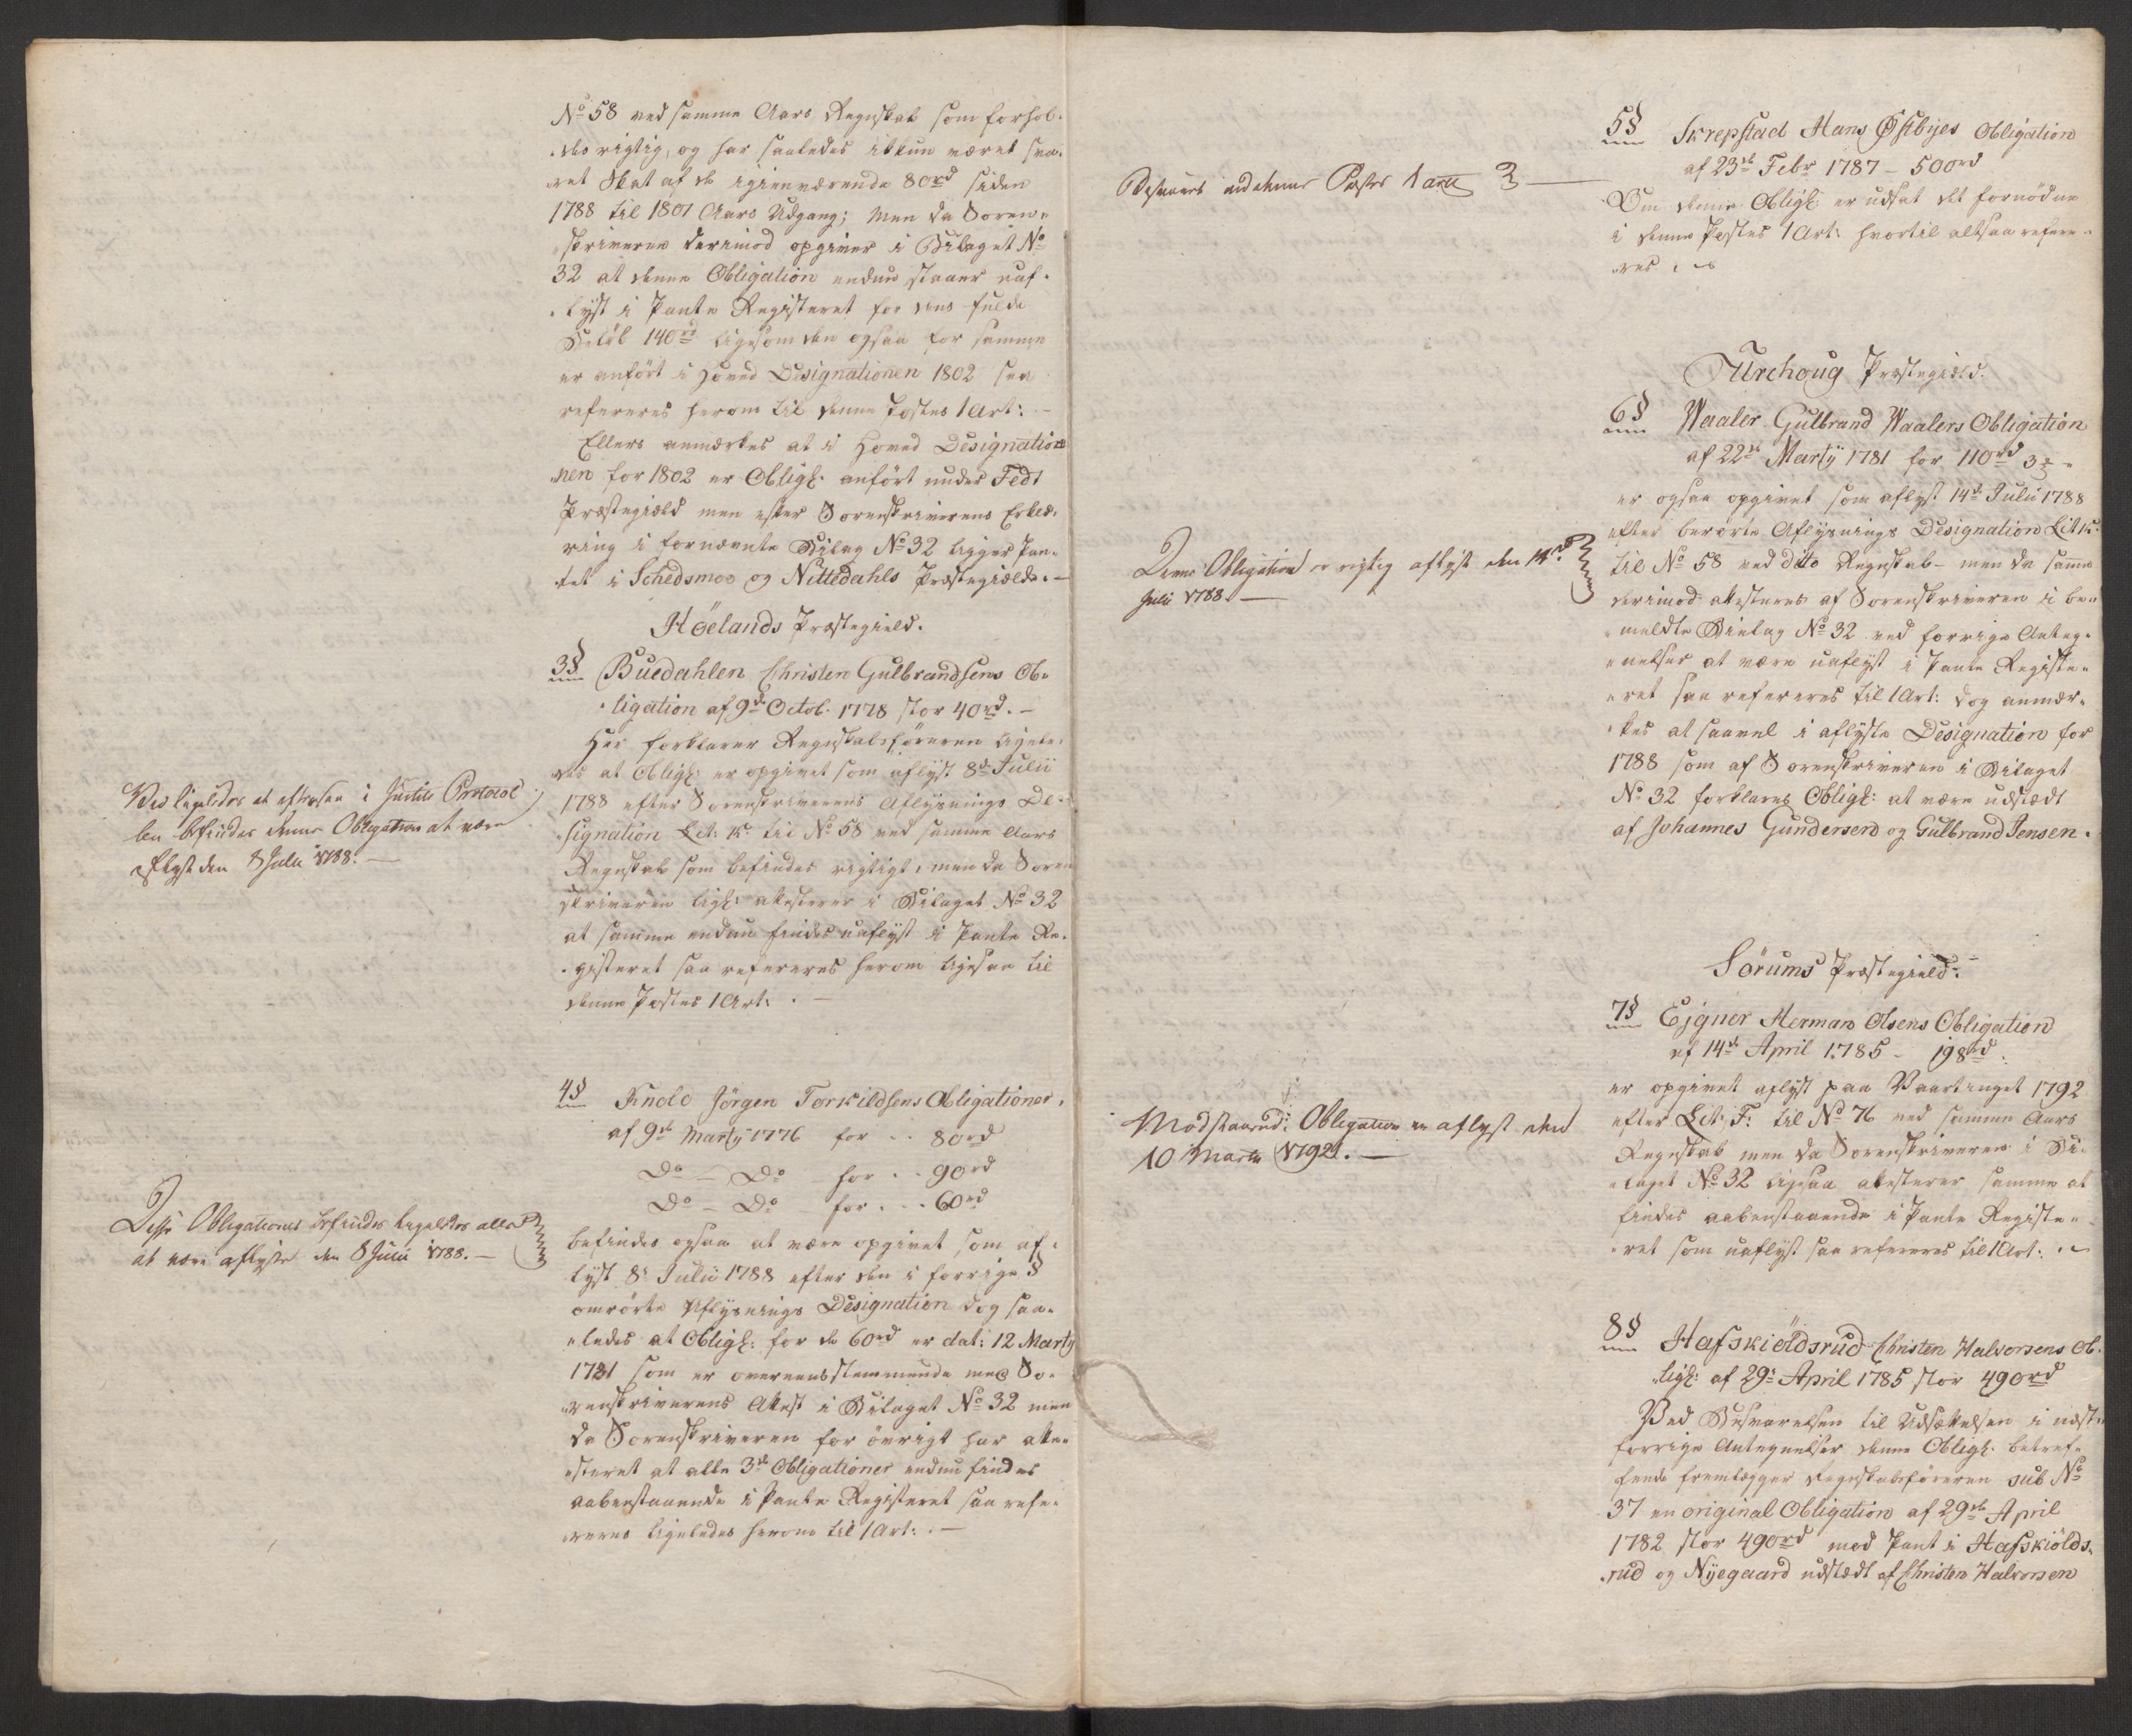 No 58 ved samme Aars Regnskab som forhol-
-des rigtig, og har saaledes ikkun været sva-
-ret Skat af de igienværende 80rd siden
1788 til 1801 Aars Udgang; men da Soren-
-skriveren derimod opgiver i Bilaget No
32 at denne Obligation endnu staaer uaf-
-lyst i Pante Registeret for dens fulde
Beløb 140rd ligesom den ogsaa for samme
er anført i Hoved Designationen 1802 saa
refereres herom til denne Postes 1 Art: -
Ellers anmærkes at i Hoved Designatio-
nen for 1802 er Obligh: anført under Fedt
Præstegield men efter Sorenskriverens Erklæ-
ring i fornævnte Bilag No 32 ligger Pan-
-tet i Schedsmoe og Nittedahls Præstegield. -
Höelands Præstegield.
3§ Buedahlen Christen Gulbrandsens Ob-
-ligation af 9de Octob. 1778 stor 40rd. -
Her forklarer Regnskabsføreren ligele-
des at Obligh: er opgivet som aflyst 8de Julii
1788 efter Sorenskriverens Aflysnings De-
-signation Lit: K. til No 58 ved samme Aars
Regnskab som befindes rigtigt, men da Soren
skriveren ligh: attesterer i Bilaget No 32
at samme endnu findes uaflyst i Pante Re-
-gisteret saa refereres herom ligesaa til
denne Postes 1 Art: . -
Ved ligeledes at efterse i Justits Protocol
len befindes denne Obligation at være
aflyst den 8 Julii 1788. -
4§ Knold Jörgen Torkildsens Obligationer,
af 9de Marty 1776 for .. 80rd
Do - Do for .. 90rd
Do - Do for ... 60rd
befindes ogsaa at være opgivet som af-
lyst 8de Julii 1788 efter den i forrige §
omrørte Aflysnings Designation dog saa-
-ledes at Obligh: for de 60rd er dat: 12 Marty
1781 som er overeensstemmende med So-
-renskriverens Attest i Bilaget No 32 men
da Sorenskriveren for øvrigt har atte-
-steret at alle 3de Obligationer endnu findes
aabenstaaende i Pante Registeret saa refe-
-reres ligeledes herom til 1 Art: . -
Disse Obligationer befindes ligeledes alle
at være aflyste den 8 Julii 1788. -
5§ Skrepstad Hans Østbyes Obligation
af 23de Febr 1787 - 500rd
Om denne Obligh: er udsat det fornødne
i denne Postes 1 Art: hvortil altsaa refere-
-res . -
Besvares ved denne Postes 1 Art
Turchoug Præstegield.
6§ Waaler Gulbrand Waalers Obligation
af 22de Marty 1781 for 110rd
er ogsaa opgivet som aflyst 14de Julii 1788
efter berørte Aflysnings Designation Lit K.
til No 58 ved dito Regnskab - men da samme
derimod attesteres af Sorenskriveren i be-
-meldte Bielag No 32 ved forrige Anteg-
-nelser at være uaflyst i Pante Registe-
-ret saa refereres til 1 Art: dog anmær-
-kes at saavel i aflyste Designation for
1788 som af Sorenskriveren i Bilaget
No 32 forklares Obligh: at være udstædt
af Johannes Gundersen og Gulbrand Jensen.
Denne Obligation er rigtig aflyst den 14de
Julii 1788. -
Sörums Præstegield.
7§ Ejgner Herman Olsens Obligation
af 14de April 1785 - 198rd.
er opgivet aflyst paa Vaartinget 1792
efter Lit: F: til No 76 ved samme Aars
Regnskab men da Sorenskriveren i Bi-
-laget No 32 ligesaa attesterer samme at
findes aabenstaaende i Pante Registe-
-ret som uaflyst saa refereres til 1 Art: . -
Modstaaende Obligation er aflyst den
10 Martii 1792. -
8§ Hafskiöldsrud Christen Halvorsens Ob-
-ligh: af 29de April 1785 stor 490rd
Ved Besvarelsen til Udsættelsen i næst-
forrige Antegnelser denne Obligh. betref-
fende fremlægger Regnskabsføreren sub No
37 en original Obligation af 29de April
1782 stor 490rd mod Pant i Hafskiölds-
-rud og Nyegaard udstædt af Christen Halvorsen